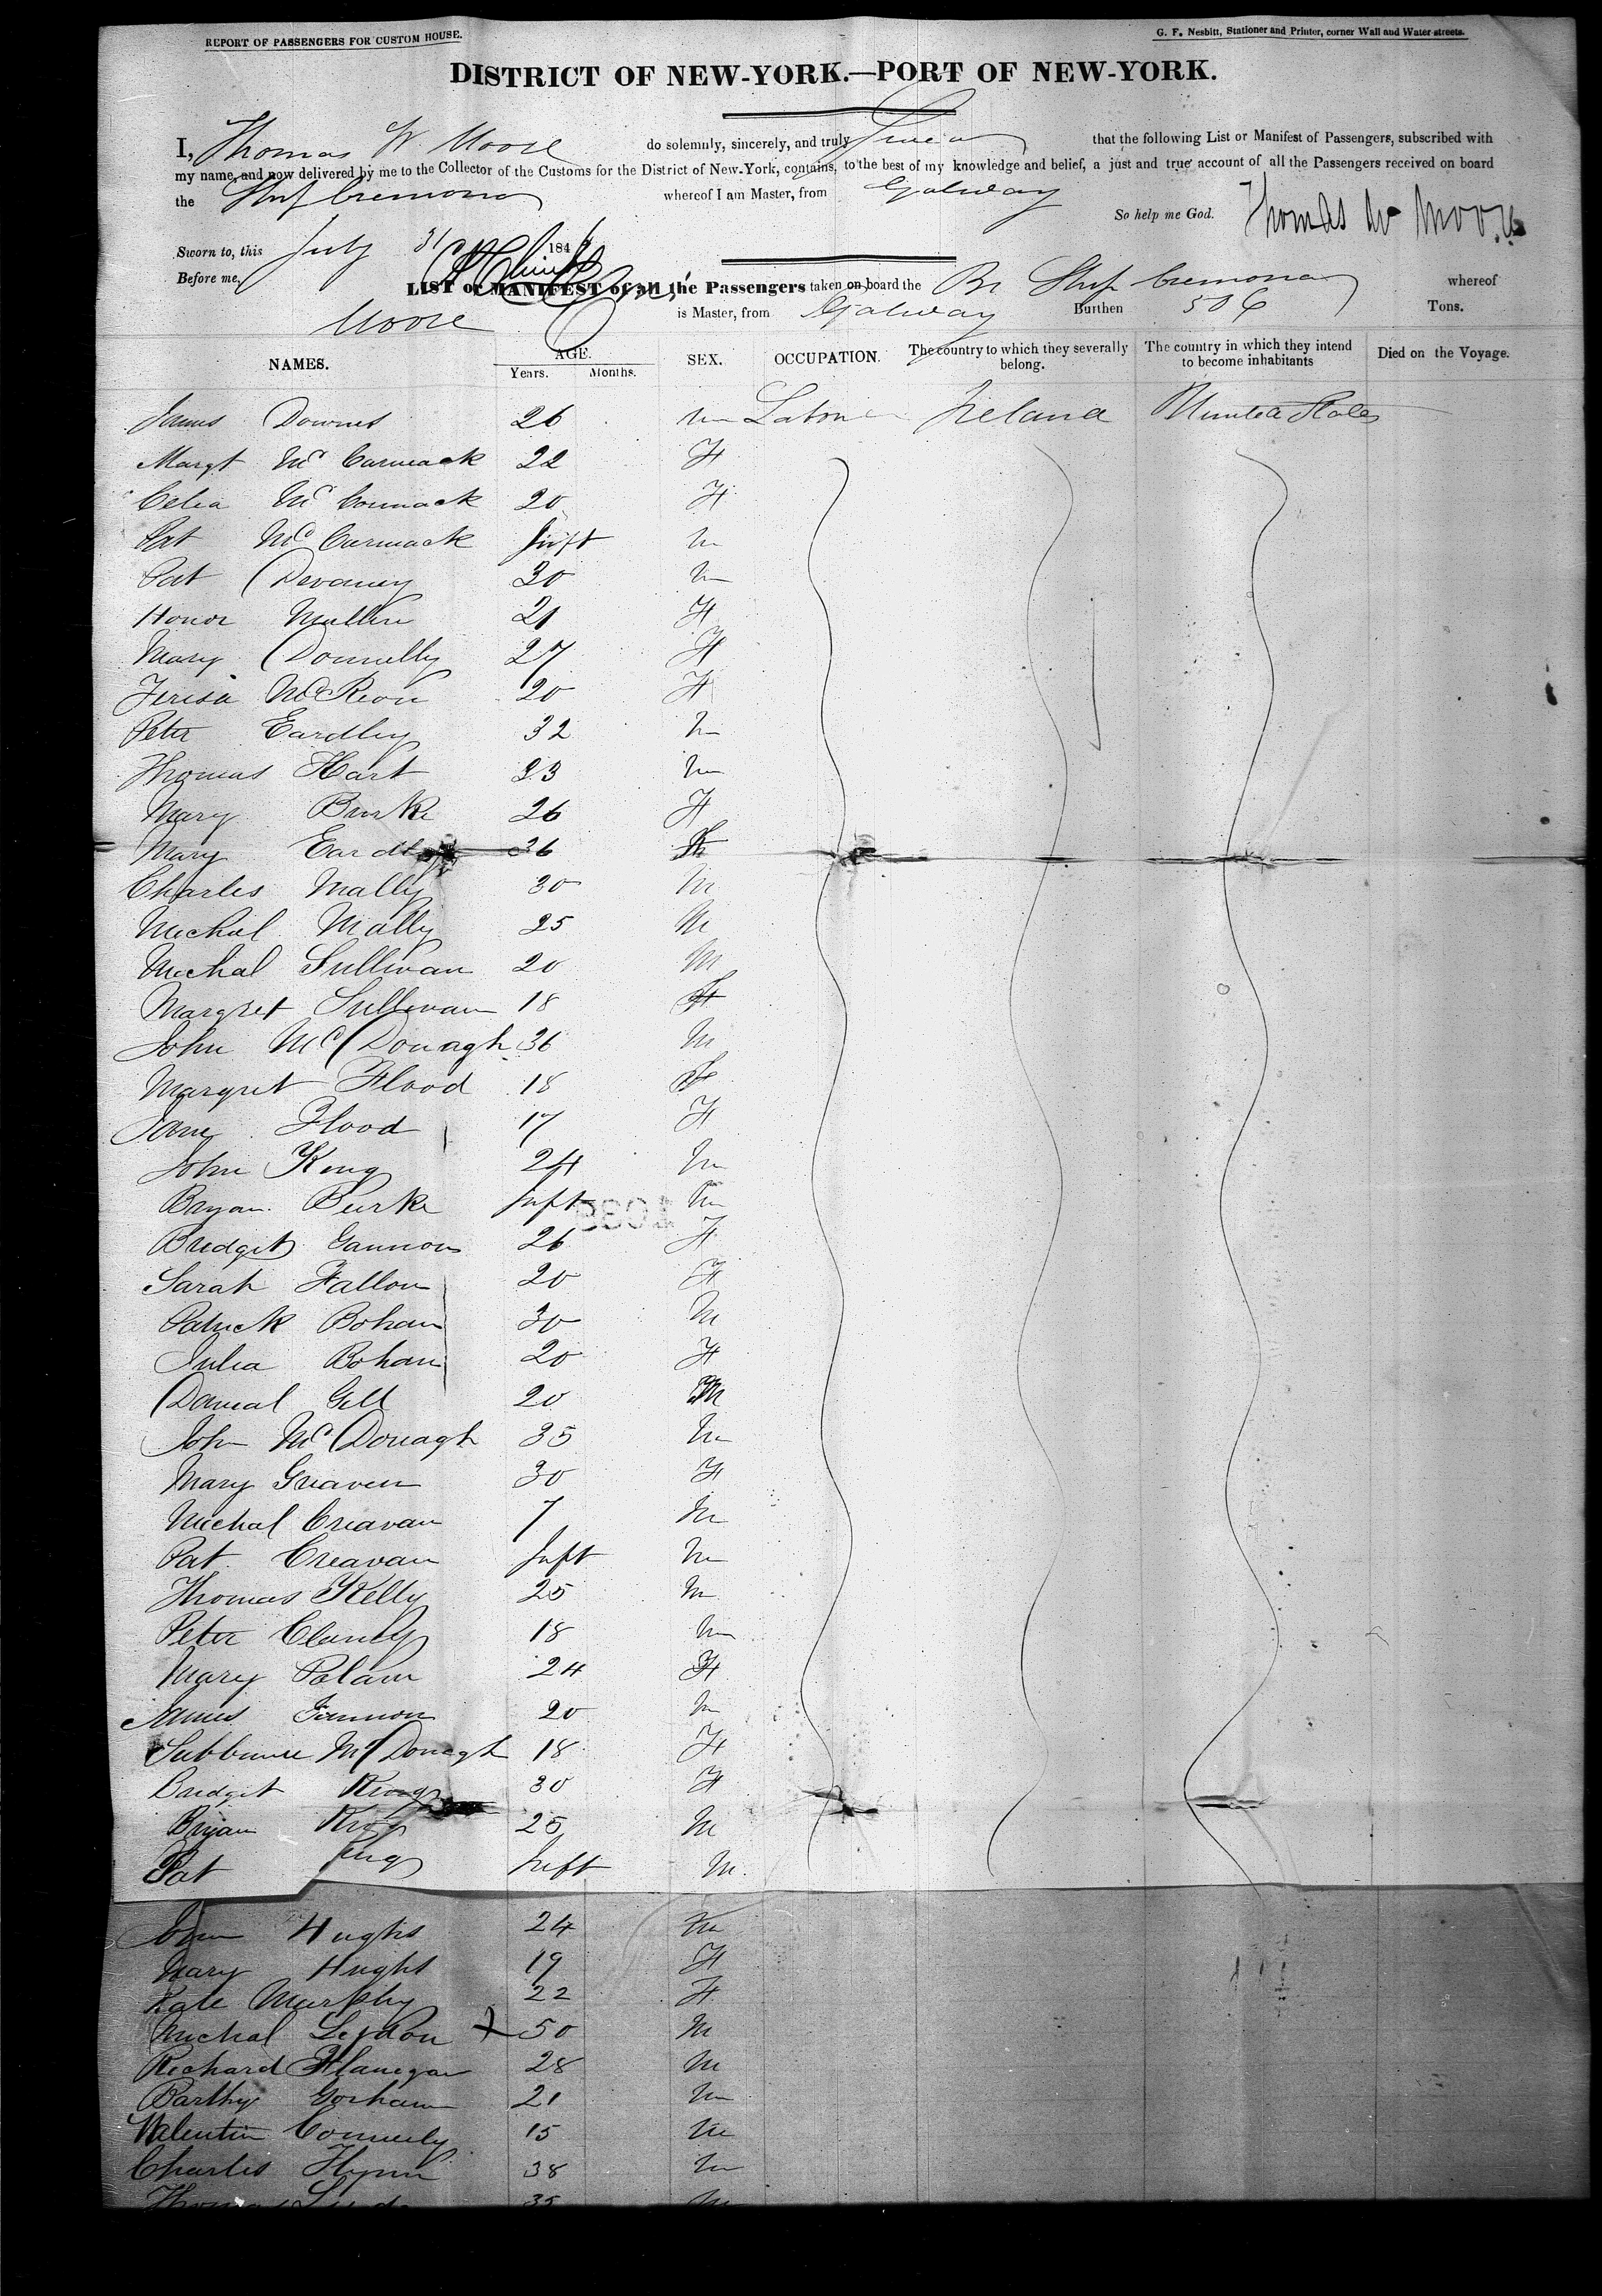 REPORT OF PASSENGERS FOR CUSTOM HOUSE.
G. F. Nesbitt, Stationer and Printer, corner Wall and Water streets.
DISTRICT OF NEW-YORK.—PORT OF NEW-YORK.
I, Thomas W Moore do solemnly, sincerely, and truly Swear that the following List or Manifest of Passengers, subscribed with
my name, and now delivered by me to the Collector of the Customs for the District of New-York, contains, to the best of my knowledge and belief, a just and true account of all the Passengers received on board
the Ship Cremona whereof I am Master, from Galway
So help me God. Thomas W Moore
Sworn to, this July 31 184
Before me,
LIST or MANIFEST of all the Passengers taken on board the Br Ship Cremona whereof
Moore is Master, from Galway Burthen 506 Tons.
NAMES. AGE. Years. Months. SEX. OCCUPATION. The country to which they severally belong. The country in which they intend to become inhabitants Died on the Voyage.
James Downes 26 m Labor Ireland United States
Margt McCormack 22 F
Celia McCormack 20 F
Pat McCormack Inft m
Pat Devaney 30 m
Honor Mullin 21 F
Mary Donnelly 27 F
Terisa McKeon 20 F
Peter Eardley 32 m
Thomas Hart 23 m
Mary Burke 26 F
Mary 26 F
Charles Mally 30 M
Michal Mally 25 M
Michal Sullivan 20 M
Margret Sullivan 18 F
John McDonagh 36 M
Margret Flood 18 F
Jane Flood 17 F
John King 24 m
Bryan Burke Inft m
Bridget Gannon 26 F
Sarah Fallon 20 F
Patrick Bohan 30 M
Julia Bohan 20 F
Danial Gill 20 M
John McDonagh 35 m
Mary Greaven 30 F
Michal Creavan 7 m
Pat Creavan Inft m
Thomas Kelly 25 m
Peter Clancy 18 m
Mary 24 F
James 20 m
McDonagh 18 F
Bridget King 30 F
Bryan King 25 M
Pat King Inft M
John Hughs 24 m
Mary Hughs 19 F
Kate Murphy 22 F
Michal Leydon 50 M
Richard Flanegan 28 M
Barthy Gorham 21 m
Valentin Connerly 15 M
Charles Flynn 38 m
Thomas 35 M